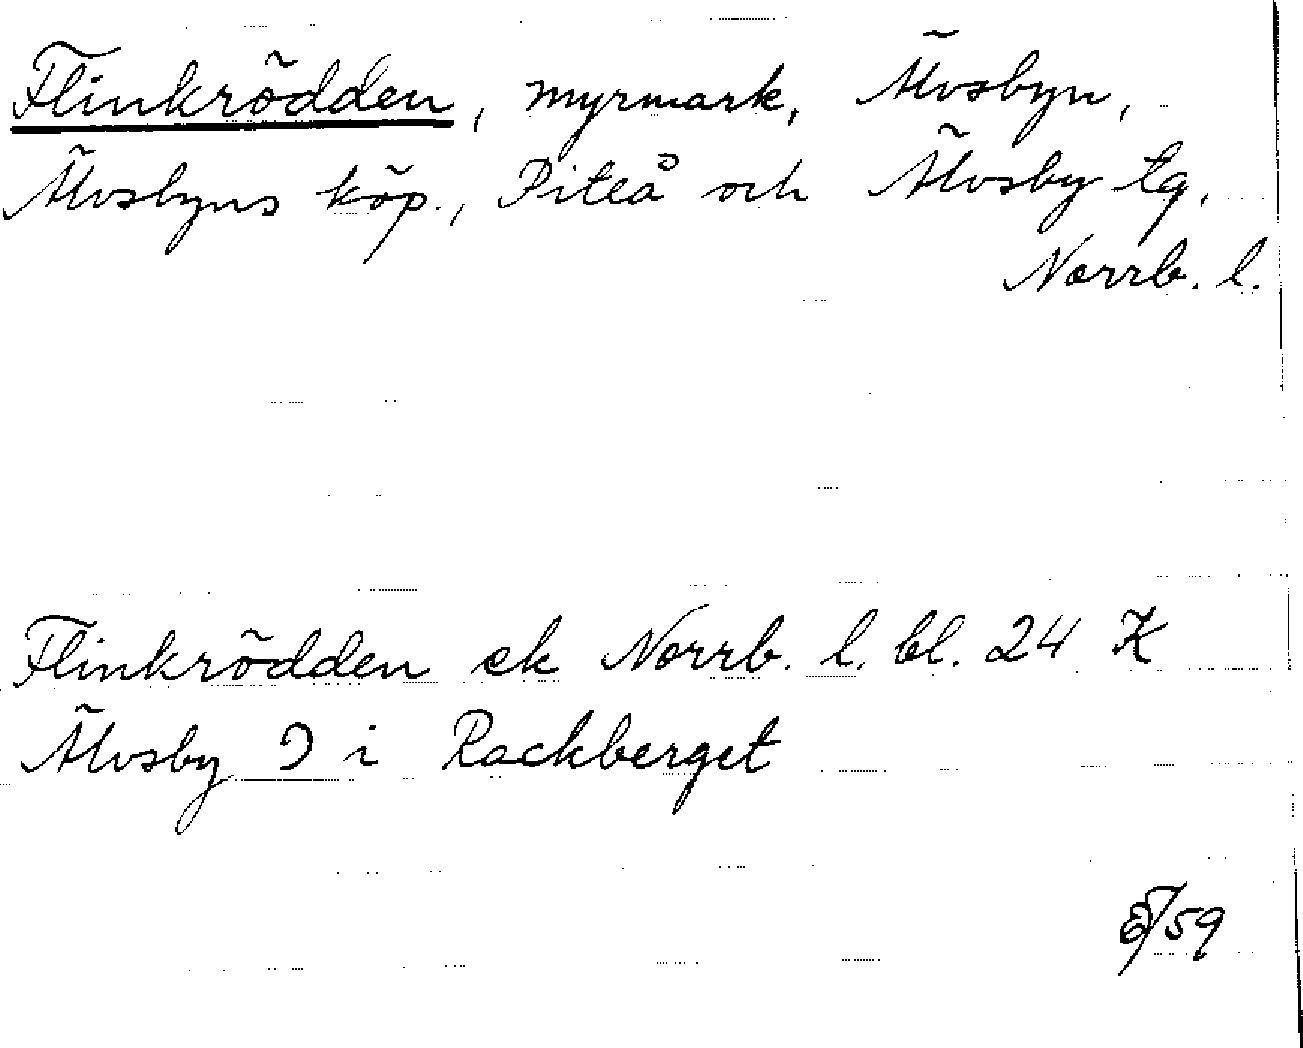 Flinkrödden, myrmark, Älvsbyn,
Älvsbyns köp., Piteå och Älvsby tg,
Norrb. l.
Flinkrödden ek Norrb. l. bl. 24 K
Älvsby I i Rackberget
/59